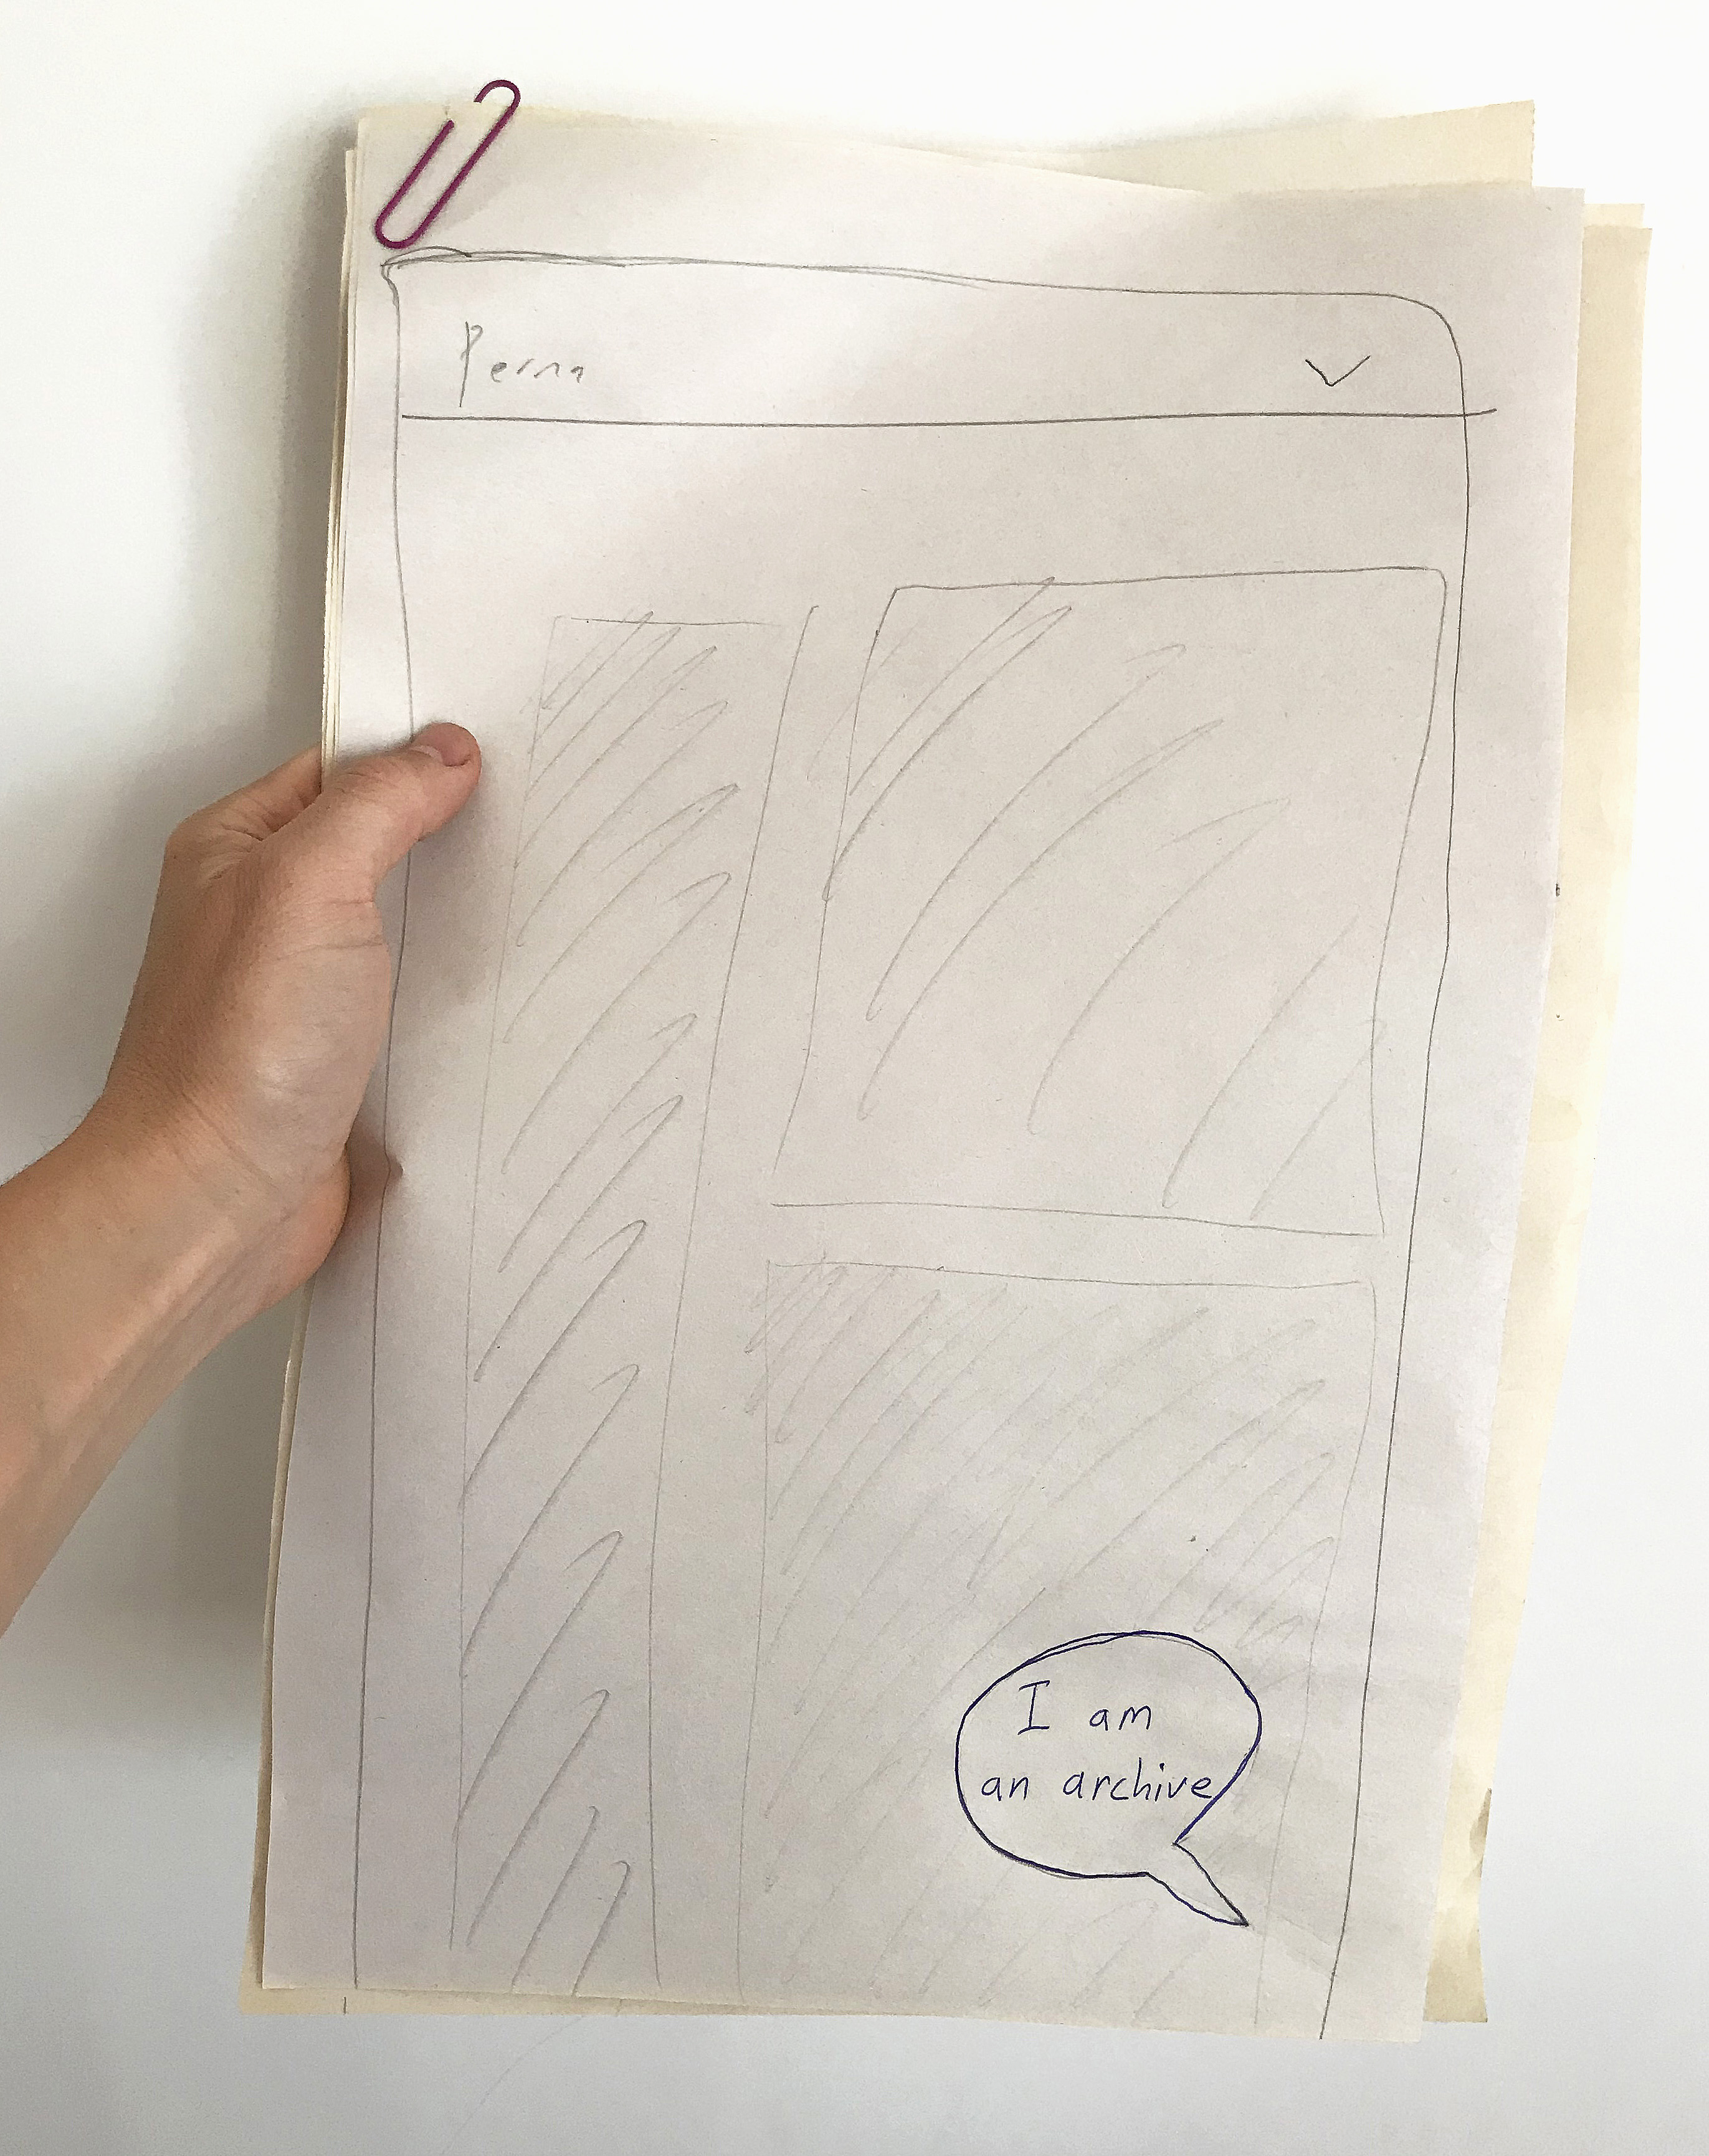 Perma
I am
an archive